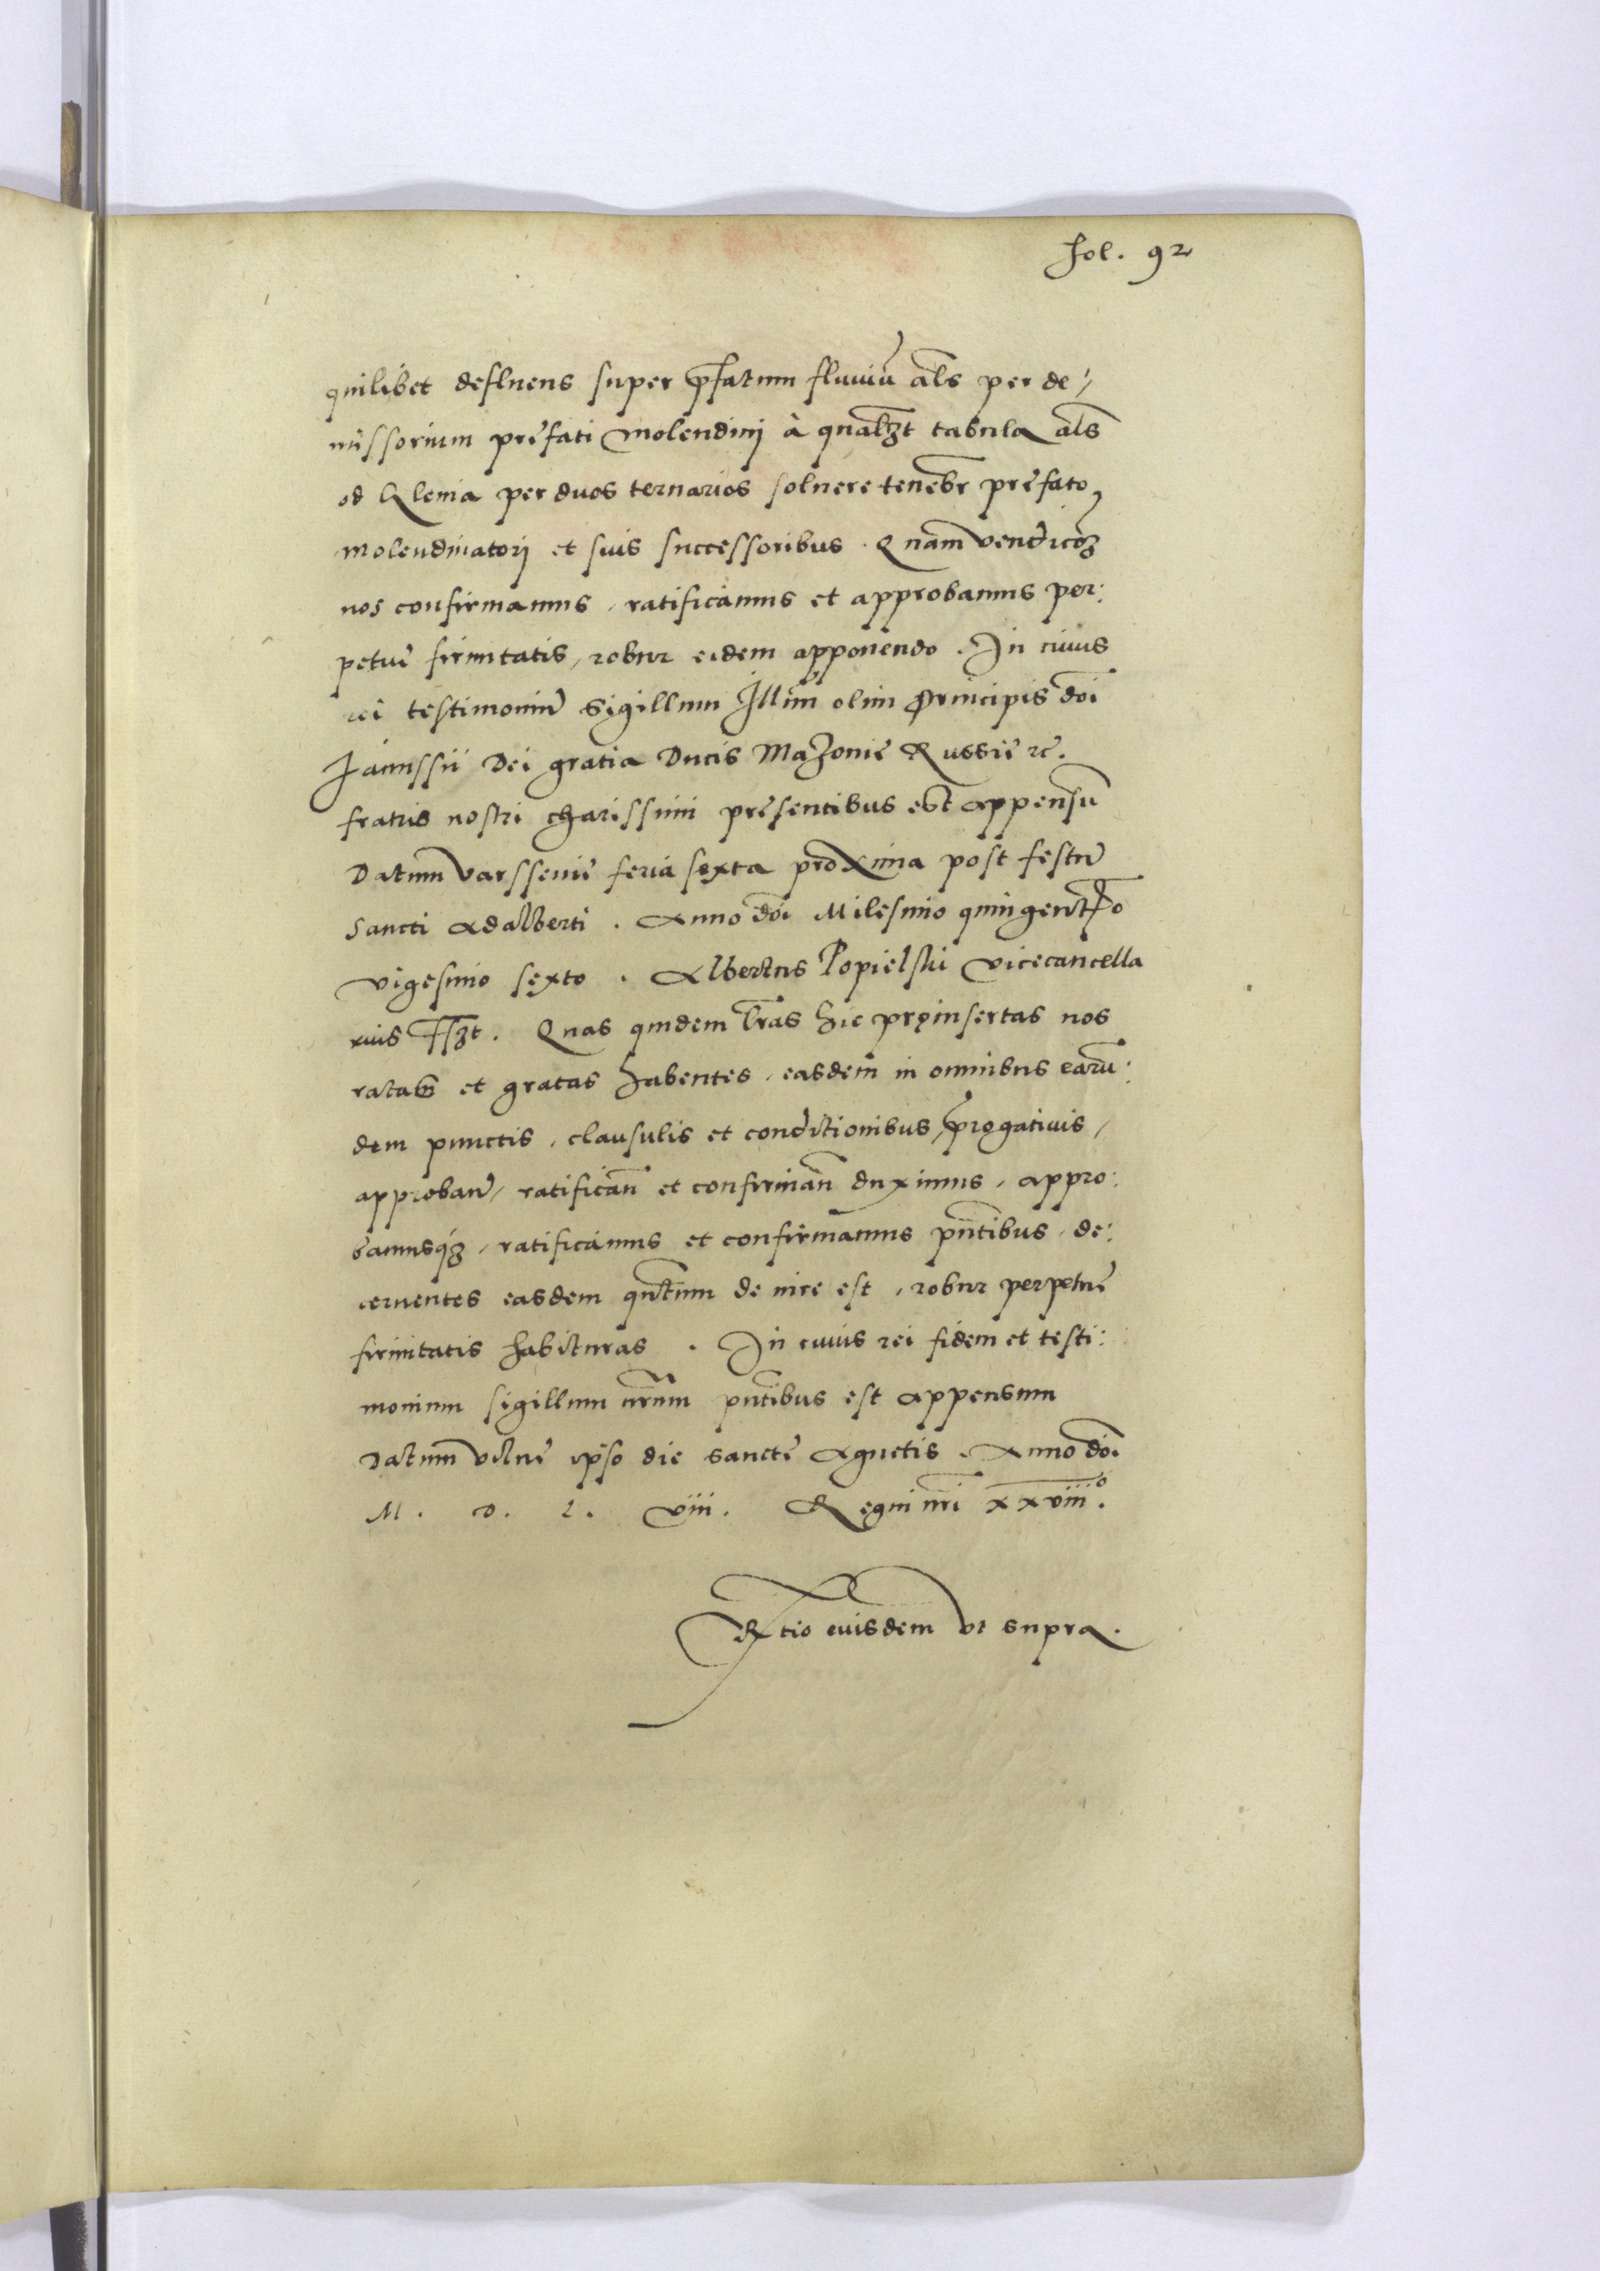 fol. 92
quilibet defluens super p̃fatum fluuiũ als̃ per de,
missorium prefati molendinj à qualʒt tabula als̃
od klenia per duos ternarios soluere tenebr̃ prefato
molendinatorj et suis successoribus. Quam vendicõʒ
nos confirmamus, ratificamus et approbamus per:
petue firmitatis, robur eidem apponendo. In cuius
rei testimoniũ sigillum Illm̃i olim Principis dõi
Janussii Dei gratia Ducis Mazouie Russie rc̃.
fratris nostri charissimi presentibus est appensũ
Datum Varssouie feria sexta proxima post festũ
Sancti Adalberti. Anno dõi Milesimo quingentᵐo
vigesimo sexto. Albertus Popielski vicecancella
rius sszt. Quas quidem lr̃as hic pręinsertas nos
ratas et gratas habentes, easdem in omnibus earũ:
dem punctis, clausulis et conditionibus, p̃rogatiuis,
approbañ, ratificañ et confirmañ duximus, appro:
bamusqʒ, ratificamus et confirmamus pñtibus, de:
cernentes easdem quãtum de iure est, robur perpetue
firmitatis habituras. In cuius rei fidem et testi:
monium sigillum nr̃um pñtibus est appensum
Datum vilne ipso die sancte Agnetis. Anno dõi
M. D. L. viii. Regni nr̃i xxviiiᵒ.
Rtio eiusdem vt supra.